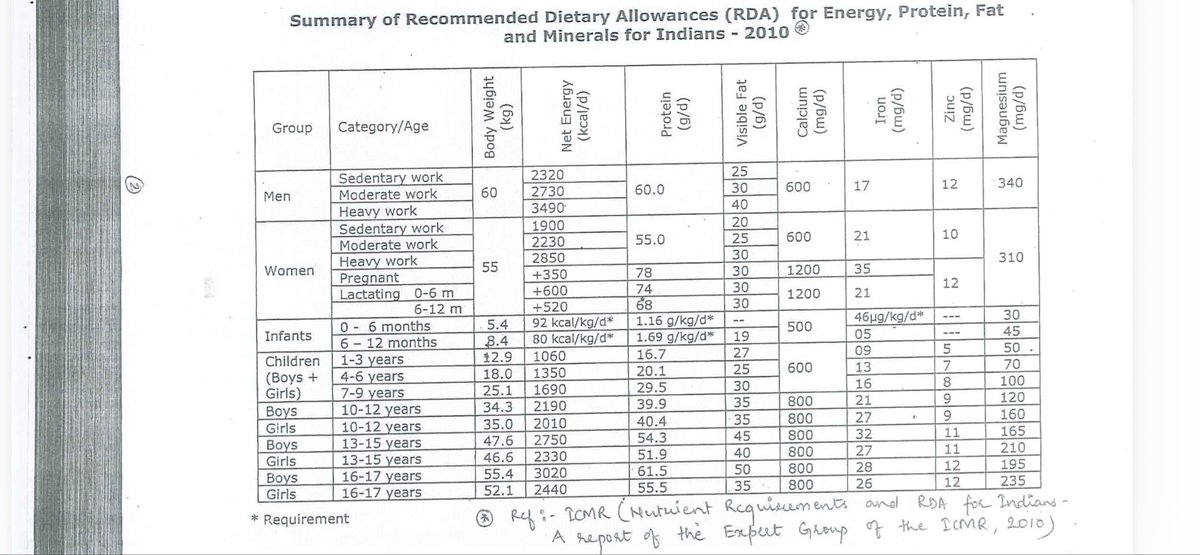 Summary of Recommended Dietary Allowances (RDA) for Energy, Protein, Fat
and Minerals for Indians - 2010 ⊛
Group Category/Age Body Weight (kg) Net Energy (kcal/d) Protein (g/d) Visible Fat (g/d) Calcium (mg/d) Iron (mg/d) Zinc (mg/d) Magnesium (mg/d)
Men Sedentary work 60 2320 60.0 25 600 17 12 340
Moderate work 2730 30
Heavy work 3490 40
Women Sedentary work 55 1900 55.0 20 600 21 10 310
Moderate work 2230 25
Heavy work 2850 30
Pregnant +350 78 30 1200 35 12
Lactating 0-6 m +600 74 30 1200 21
6-12 m +520 68 30
Infants 0 - 6 months 5.4 92 kcal/kg/d* 1.16 g/kg/d* -- 500 46µg/kg/d* --- 30
6 – 12 months 8.4 80 kcal/kg/d* 1.69 g/kg/d* 19 05 --- 45
Children (Boys + Girls) 1-3 years 12.9 1060 16.7 27 600 09 5 50
4-6 years 18.0 1350 20.1 25 13 7 70
7-9 years 25.1 1690 29.5 30 16 8 100
Boys 10-12 years 34.3 2190 39.9 35 800 21 9 120
Girls 10-12 years 35.0 2010 40.4 35 800 27 9 160
Boys 13-15 years 47.6 2750 54.3 45 800 32 11 165
Girls 13-15 years 46.6 2330 51.9 40 800 27 11 210
Boys 16-17 years 55.4 3020 61.5 50 800 28 12 195
Girls 16-17 years 52.1 2440 55.5 35 800 26 12 235
* Requirement
⊛ Ref :- ICMR (Nutrient Requirements and RDA for Indians -
A report of the Expert Group of the ICMR, 2010)
②